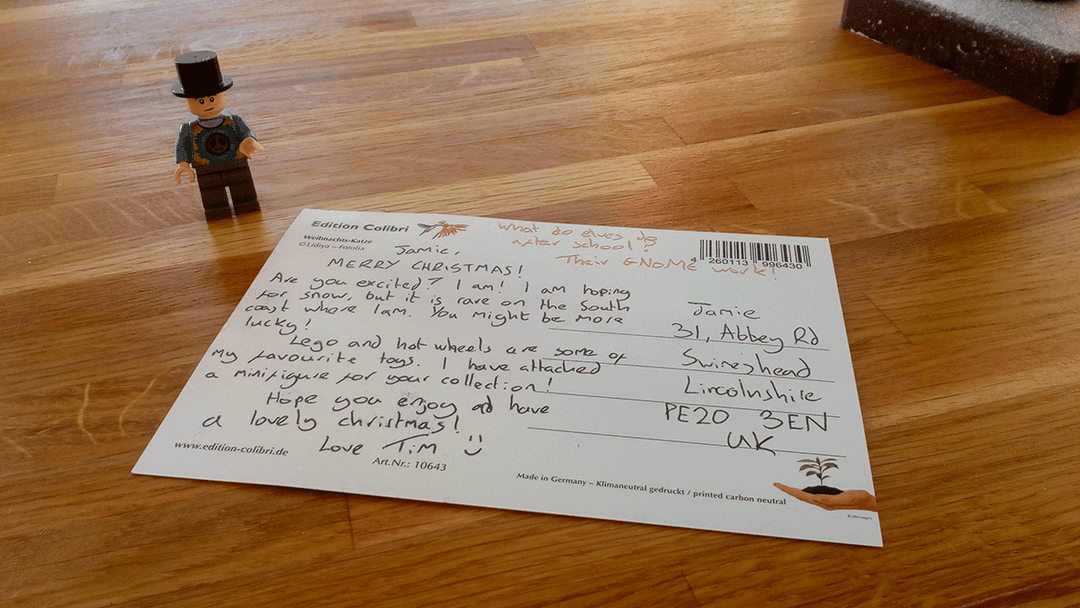 Edition Colibri
Weihnachts-Katze
©Lidiya – Fotolia
What do elves do
after school?
Their GNOME work!
4 260113 996430
Jamie,
MERRY CHRISTMAS!
Are you excited? I am! I am hoping
for snow, but it is rare on the South
coast where I am. You might be more
lucky!
Lego and hot wheels are some of
my favourite toys. I have attached
a minifigure for your collection!
Hope you enjoy and have
a lovely christmas!
Love Tim
Jamie
31, Abbey Rd
Swineshead
Lincolnshire
PE20 3EN
UK
www.edition-colibri.de
Art.Nr.: 10643
Made in Germany – Klimaneutral gedruckt / printed carbon neutral